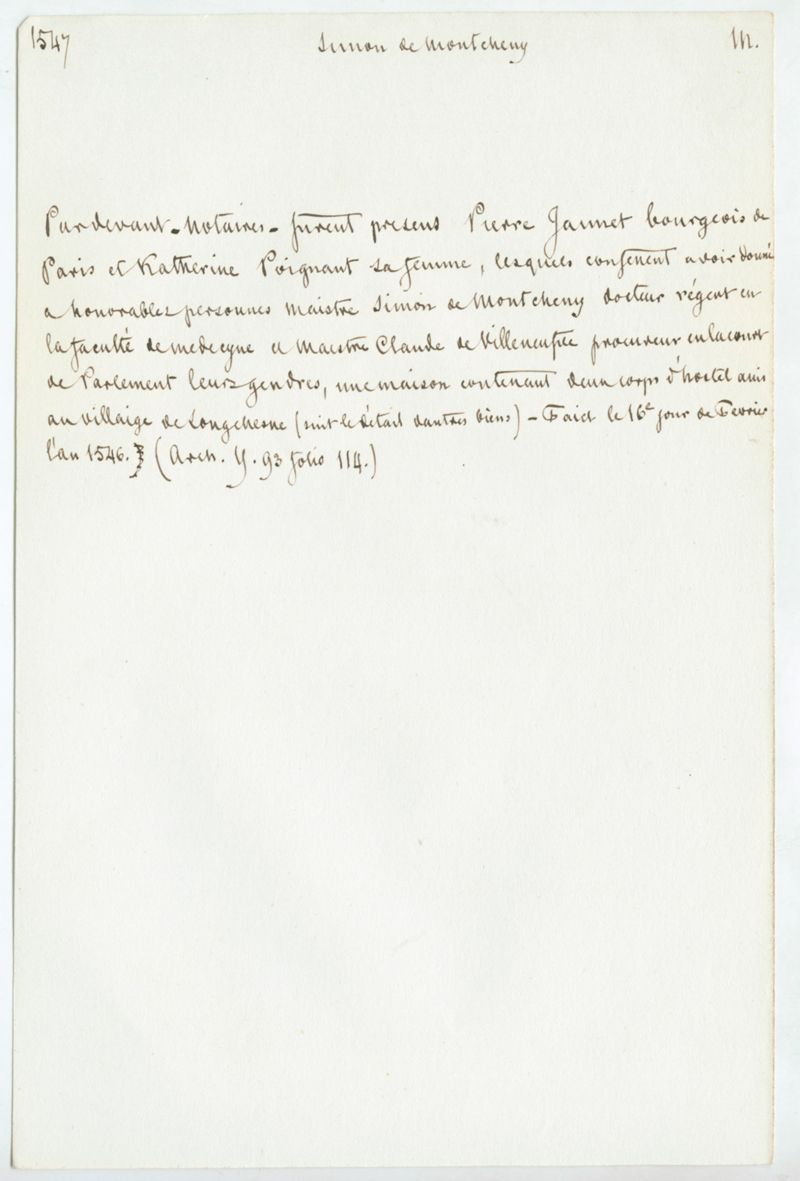 1547 Simon de Montcheny M.
Par devant - Notaires - furent presens Pierre Jannet bourgeois de
Paris et Katherine Poignant sa femme, lesquels confenent avoir donné
a honorables personnes maistre Simon de Montcheny docteur régent en
la faculté de medecyne et Maestre Claude de procureur en la court
de Parlement leurs gendres, une maison contenant deux corps d'hostel assis
au villaige de Longchesne (suit le détail dautres biens) - Faict le 16e jour de Fevrier
l'an 1546. (Arch. Y. 93 folio 114.)